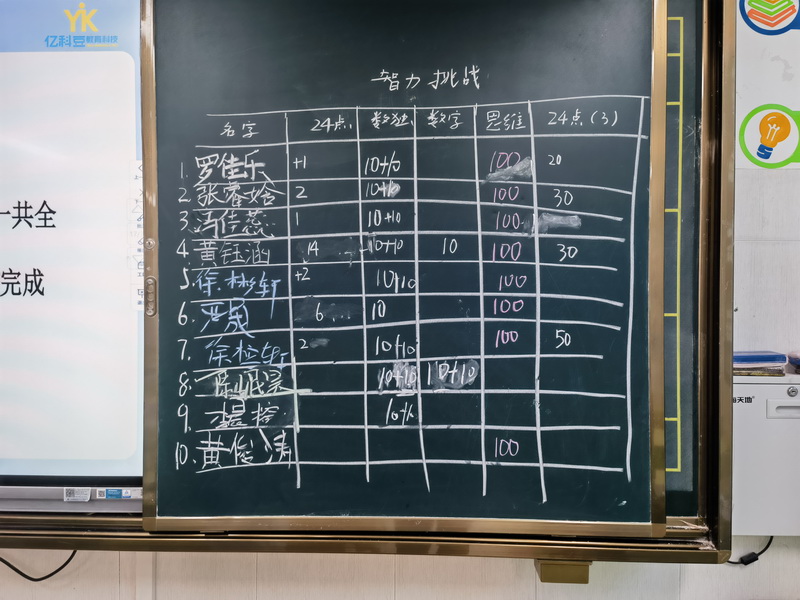 YK
亿科豆教育科技
一共全
完成
智力挑战
名字 24点 数独 数字 思维 24点(3)
1. 罗佳乐 +1 10+10 100 20
2. 张睿 2 10+10 100 30
3. 冯佳蕊 1 10+10 100
4. 黄钰涵 14 10+10 10 100 30
5. 徐彬轩 +2 10+10 100
6. 严晟 6 10 100
7. 徐 2 10+10 100 50
8. 陈 10+10 10+10
9. 10+10
10. 黄俊涛 100
天地